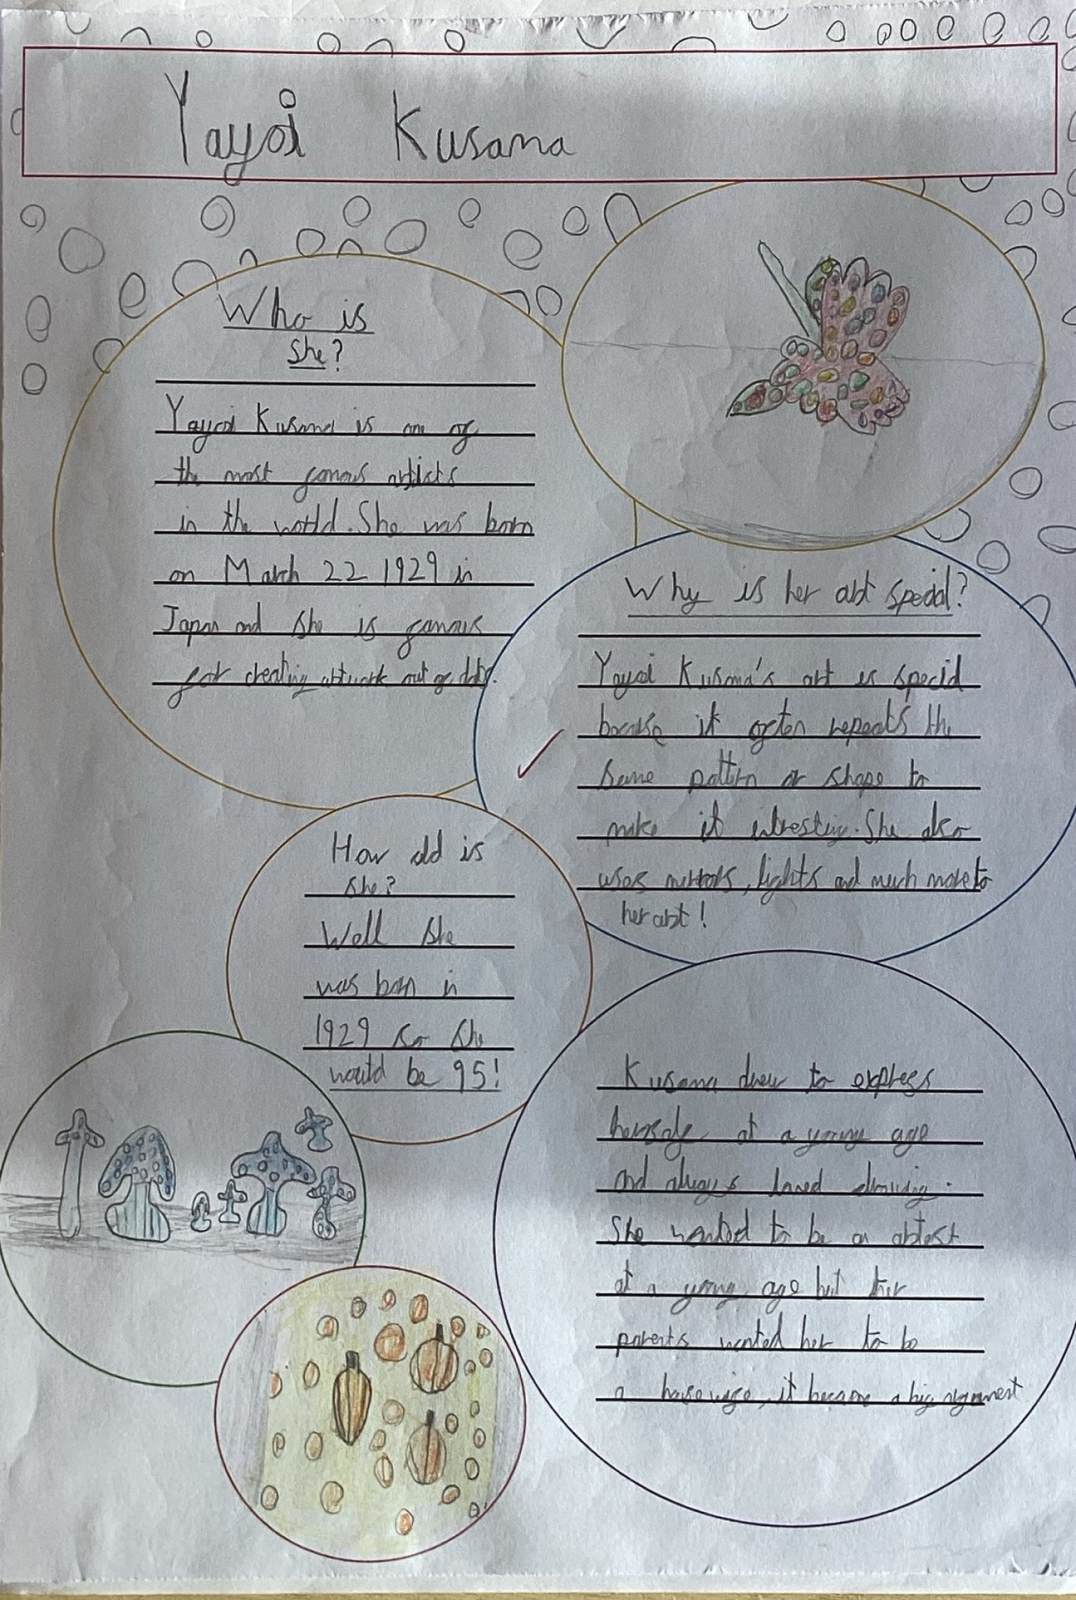 Yayoi Kusama
Who is
she?
Yayoi Kusama is one of
the most famous artists
in the world. She was born
on March 22 1929 in
Japan and she is famous
for creating artwork out of dots.
Why is her art special?
Yayoi Kusama's art is special
because it often repeats the
same pattern or shape to
make it intresting. She also
uses mirrors, lights and much more to
her art!
How old is
she?
Well she
was born in
1929 so she
would be 95!
Kusama drew to express
herself at a young age
and always loved drawing.
She wanted to be an artist
at a young age but her
parents wanted her to be
a housewife, it became a big argument